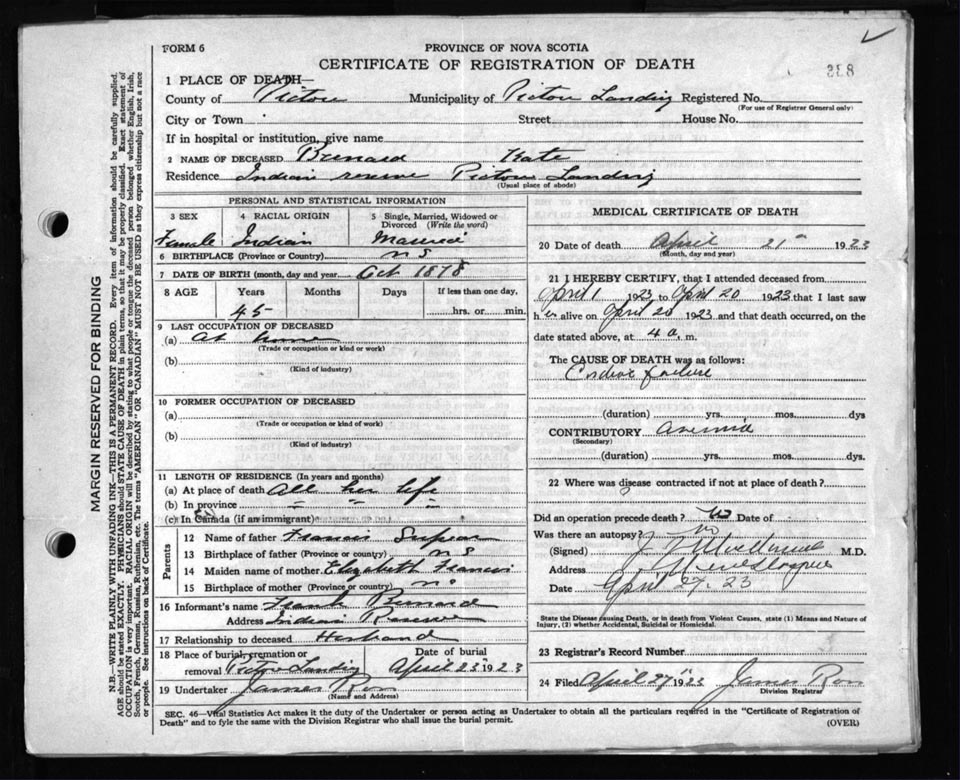 FORM 6
PROVINCE OF NOVA SCOTIA
CERTIFICATE OF REGISTRATION OF DEATH
338
1 PLACE OF DEATH—
County of Pictou Municipality of Pictou Landing Registered No.
(For use of Registrar General only)
City or Town Street House No.
If in hospital or institution, give name
2 NAME OF DECEASED Bernard Kate
Residence Indian reserve Pictou Landing
(Usual place of abode)
PERSONAL AND STATISTICAL INFORMATION
3 SEX 4 RACIAL ORIGIN 5 Single, Married, Widowed or Divorced (Write the word)
Female Indian Married
6 BIRTHPLACE (Province or Country) NS
7 DATE OF BIRTH (month, day and year) Oct 1878
8 AGE Years Months Days If less than one day,
45 hrs. or min.
9 LAST OCCUPATION OF DECEASED
(a) At home
(Trade or occupation or kind or work)
(b)
(Kind of industry)
10 FORMER OCCUPATION OF DECEASED
(a)
(Trade or occupation or kind of work)
(b)
(Kind of industry)
11 LENGTH OF RESIDENCE (In years and months)
(a) At place of death All her life
(b) In province " " "
(c) In Canada (if an immigrant)
Parents
12 Name of father Francis
13 Birthplace of father (Province or country) NS
14 Maiden name of mother Elizabeth Francis
15 Birthplace of mother (Province or country) NS
16 Informant's name Frank Bernard
Address Indian Reserve
17 Relationship to deceased Husband
18 Place of burial, cremation or removal Pictou Landing Date of burial April 23 1923
19 Undertaker James
(Name and Address)
MEDICAL CERTIFICATE OF DEATH
20 Date of death April 21 1923
(Month, day and year)
21 I HEREBY CERTIFY, that I attended deceased from
April 1 1923 to April 20 1923 that I last saw
her alive on April 20 1923 and that death occurred, on the
date stated above, at 4 a. m.
The CAUSE OF DEATH was as follows:
Cardiac failure
(duration) yrs. mos. dys
CONTRIBUTORY
(Secondary)
(duration) yrs. mos. dys.
22 Where was disease contracted if not at place of death?
Did an operation precede death? no Date of
Was there an autopsy? no
(Signed) M.D.
Address
Date April 27, 23
State the Disease causing Death, or in death from Violent Causes, state (1) Means and Nature of Injury, (2) whether Accidental, Suicidal or Homicidal.
23 Registrar's Record Number
24 Filed April 27 1923 James
Division Registrar
SEC. 46—Vital Statistics Act makes it the duty of the Undertaker or person acting as Undertaker to obtain all the particulars required in the "Certificate of Registration of
Death" and to fyle the same with the Division Registrar who shall issue the burial permit. (OVER)
MARGIN RESERVED FOR BINDING
N.B.—WRITE PLAINLY WITH UNFADING INK—THIS IS A PERMANENT RECORD. Every item of information should be carefully supplied.
AGE should be stated EXACTLY. PHYSICIANS should STATE CAUSE OF DEATH in plain terms, so that it may be properly classified. Exact statement of
OCCUPATION is very important. RACIAL ORIGIN will be described by stating to what people or tongue the deceased person belonged whether English, Irish,
Scotch, French, German, Russian, Ruthenian, etc. The terms "AMERICAN" OR "CANADIAN" MUST NOT BE USED as they express citizenship but not a race
or people. See instructions on back of Certificate.